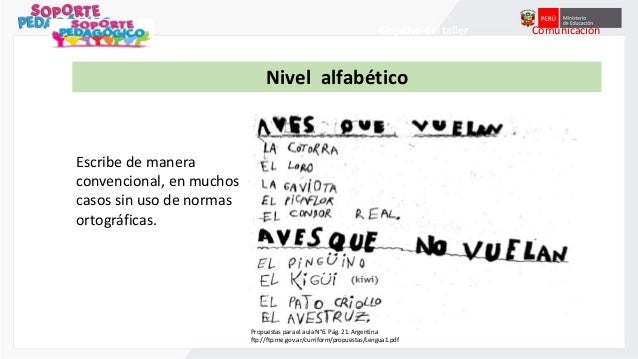 SOPORTE
PEDAGÓGICO
SOPORTE
PEDAGÓGICO
Objetivo del taller
PERÚ
Ministerio
de Educación
Comunicación
Nivel alfabético
Escribe de manera
convencional, en muchos
casos sin uso de normas
ortográficas.
AVES QUE VUELAN
LA COTORRA
EL LORO
LA GAVIOTA
EL PICAFLOR
EL CONDOR REAL.
AVES QUE NO VUELAN
EL PINGÜINO
EL KIGÜI (kiwi)
EL PATO CRIOLLO
EL AVESTRUZ.
Propuestas para el aula N°6. Pág. 21. Argentina
ftp://ftp.me.gov.ar/curriform/propuestas/Lengua1.pdf